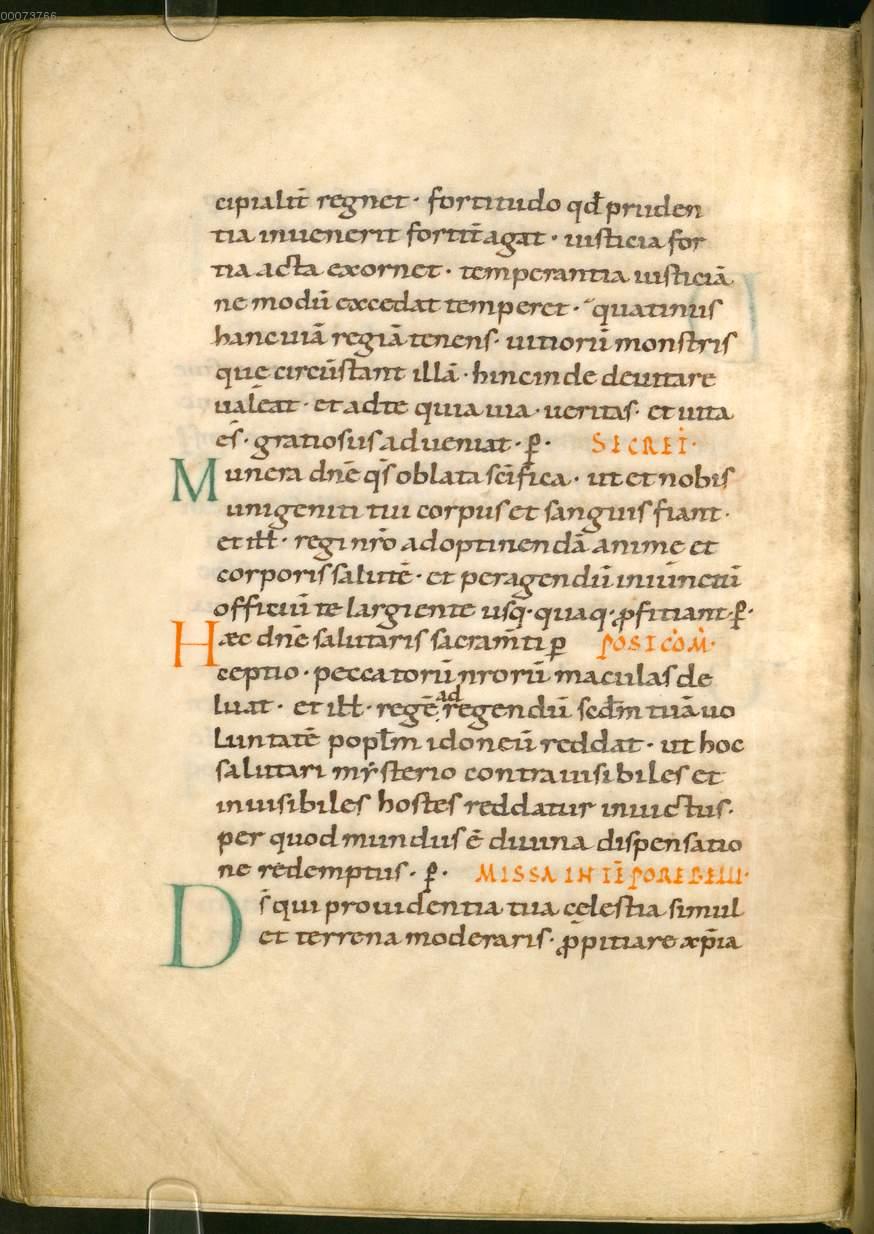 00073766
cipialit̄ regnet · fortitudo qđ pruden
tia inuenerit fortit̄ agat · iusticia for
tia acta exornet · temperantia iusticiā
ne modū excedat temperet · quatinus
hanc uiā regiā tenens · uitiorū monstris
que circūstant illā · hinc inde deuitare
ualeat · et ad te quia uia · ueritas · et uita
es̄ · gratiosus adueniat · p̄ · SECRET̄ ·
Munera dn̄e qs̄ oblata sc̄ifica · ut et nobis
unigeniti tui corpus et sanguis fiant ·
et ill̄ · regi nr̄o ad optinendā anime et
corporis salutē · et peragendū iniūnctū
officiū te largiente usq · quaq · ꝓfitiant · p̄ ·
Haec dn̄e salutaris sacram̄ti ꝑ POST COM̄ ·
ceptio · peccatorū nrorū maculas de
luat · et ill̄ · regē ad regendū scd̄m tuā uo
luntatē popl̄m idoneū reddat · ut hoc
salutari mẏsterio contra uisibiles et
inuisibiles hostes reddatur inuictus ·
per quod mundus ē diuina dispensatio
ne redemptus · p̄ · MISSA IN TĒPORE BELLI ·
Ds̄ qui prouidentia tua celestia simul
et terrena moderaris · ꝓpitiare xp̄ia